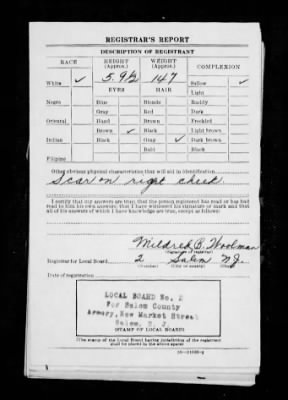 REGISTRAR'S REPORT
DESCRIPTION OF REGISTRANT
RACE HEIGHT (Approx.) WEIGHT (Approx.) COMPLEXION
White ✓ 5.9½ 147 Sallow ✓
EYES HAIR Light
Negro Blue Blonde Ruddy
Gray Red Dark
Oriental Hazel Brown Freckled
Brown ✓ Black Light brown
Indian Black Gray ✓ Dark brown
Bald Black
Filipino
Other obvious physical characteristics that will aid in identification
Scar on right cheek
I certify that my answers are true; that the person registered has read or has had
read to him his own answers; that I have witnessed his signature or mark and that
all of his answers of which I have knowledge are true, except as follows:
Mildred B. Woolman
(Signature of registrar)
Registrar for Local Board 2 Salem N.J.
(Number) (City or county) (State)
Date of registration
LOCAL BOARD No. 2
For Salem County
Armory, New Market Street
Salem, N. J.
STAMP OF LOCAL BOARD
(The stamp of the Local Board having jurisdiction of the registrant
shall be placed in the above space)